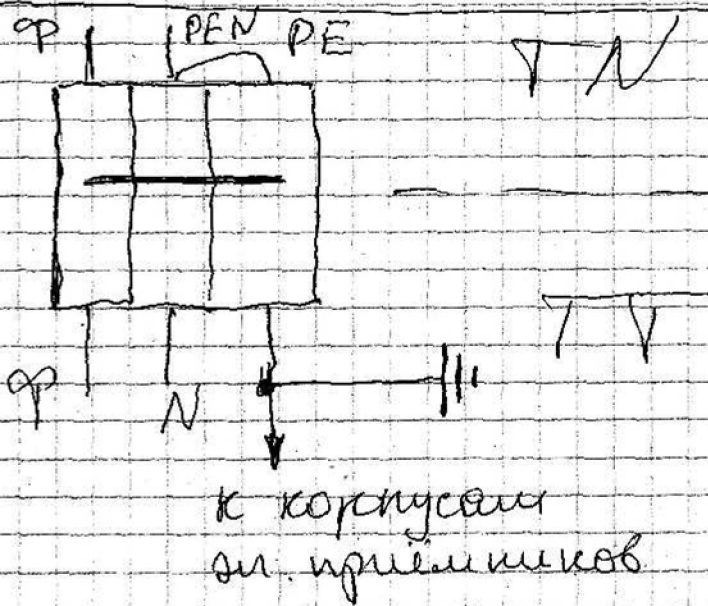 Ф PEN PE
TN
Ф N
к корпусам
эл. приёмников